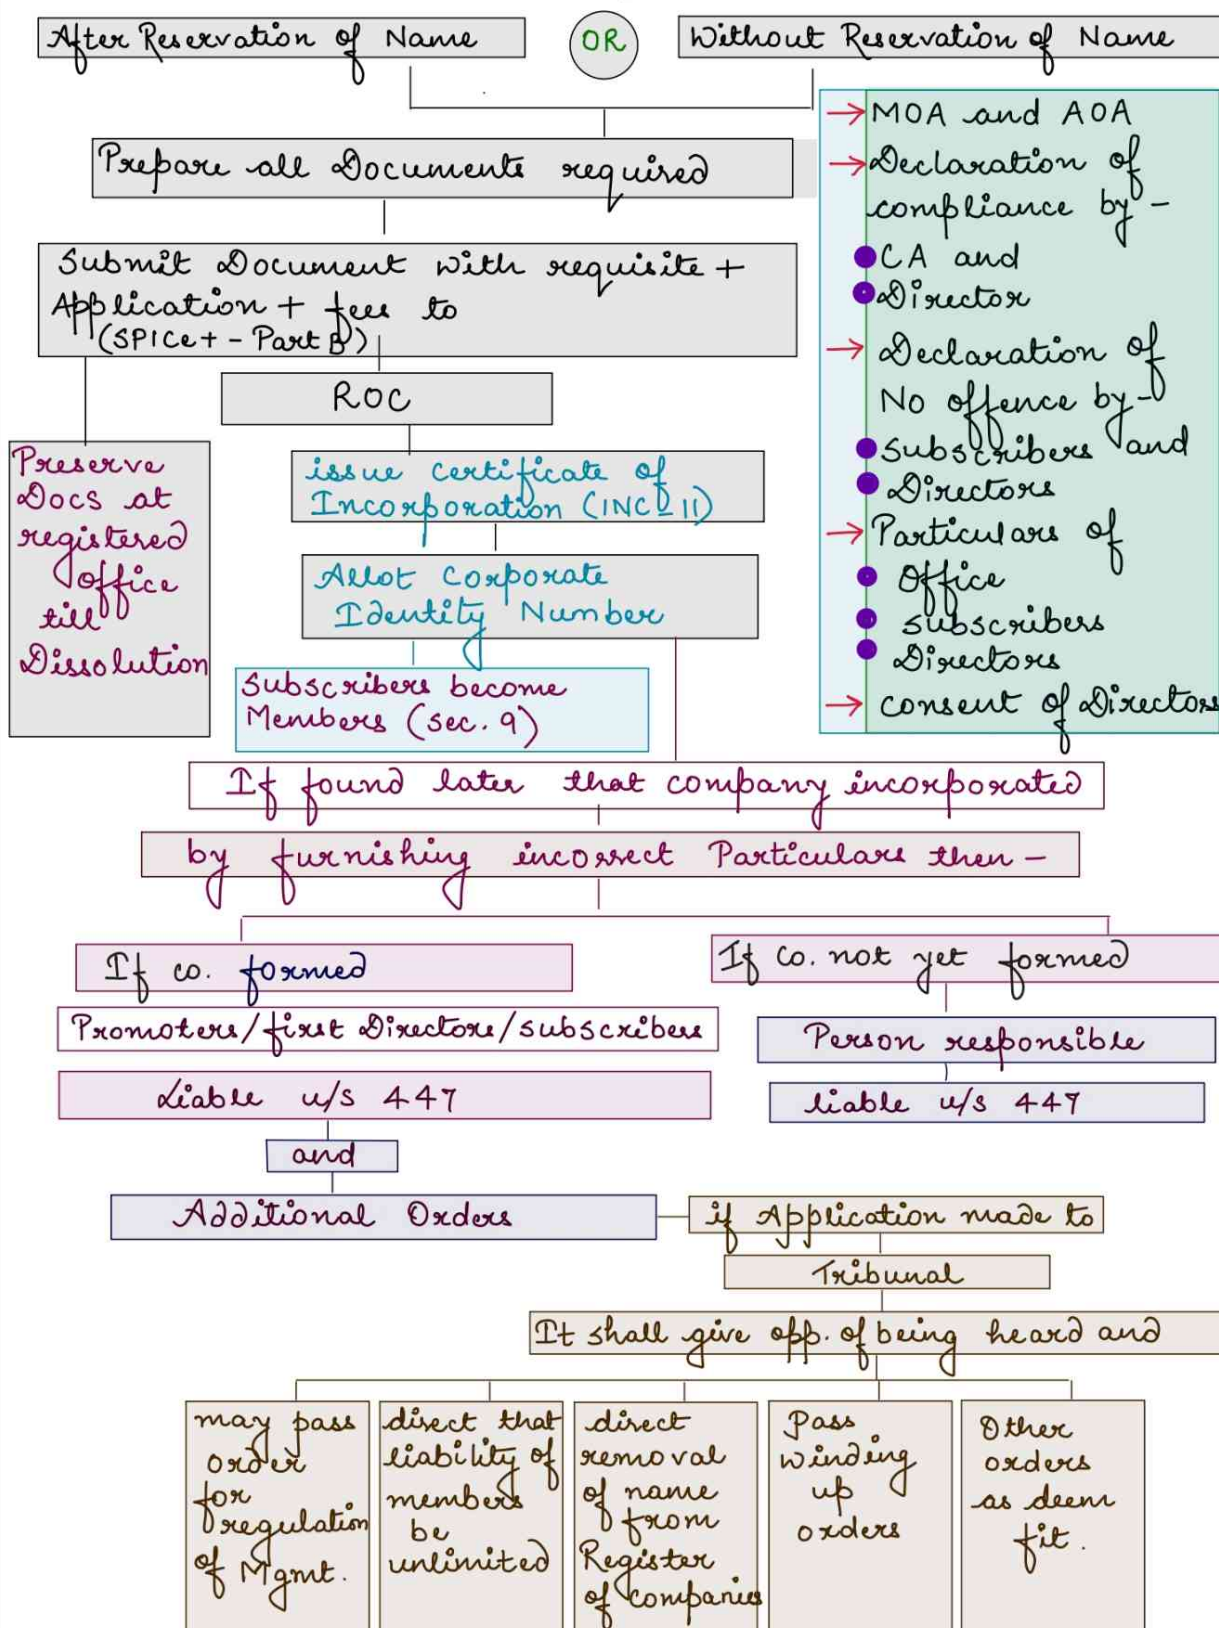 After Reservation of Name
OR
Without Reservation of Name
Prepare all Documents required
Submit Document with requisite +
Application + fees to
(SPICe+ - Part B)
ROC
Preserve
Docs at
registered
office
till
Dissolution
issue certificate of
Incorporation (INC-11)
Allot Corporate
Identity Number
Subscribers become
Members (sec. 9)
→ MOA and AOA
→ Declaration of
compliance by -
CA and
Director
→ Declaration of
No offence by -
Subscribers and
Directors
→ Particulars of
Office
Subscribers
Directors
→ consent of Directors
If found later that company incorporated
by furnishing incorrect Particulars then -
If co. formed
Promoters/first Directors/subscribers
Liable u/s 447
and
Additional Orders
If Co. not yet formed
Person responsible
liable u/s 447
if Application made to
Tribunal
It shall give opp. of being heard and
may pass
order
for
regulation
of Mgmt.
direct that
liability of
members
be
unlimited
direct
removal
of name
from
Register
of companies
Pass
winding
up
orders
Other
orders
as deem
fit.